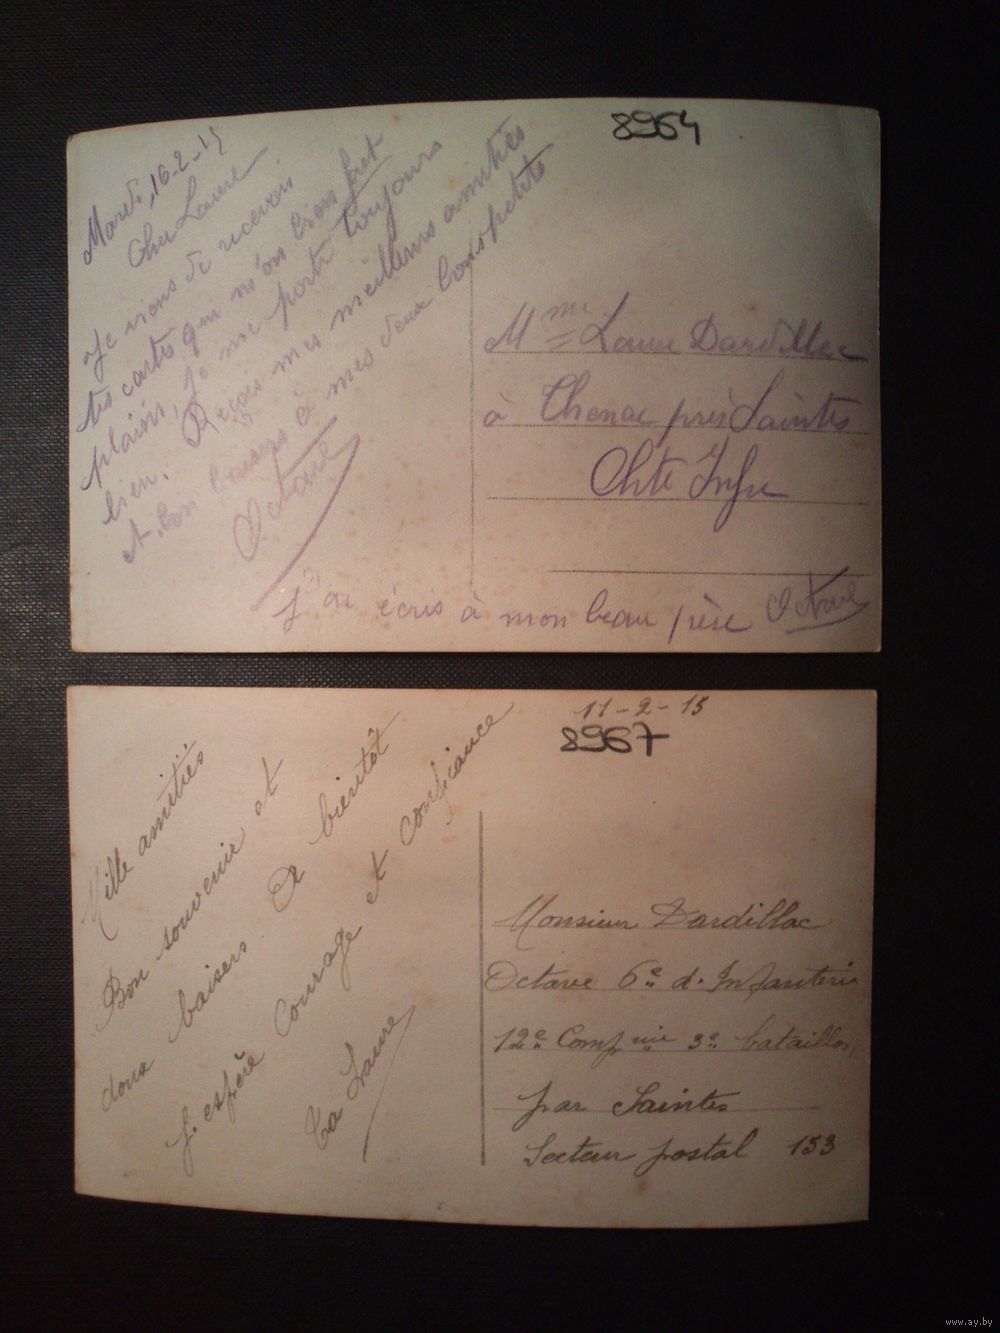 8964
Mardi, 16-2-15
Cher Laure
Je viens de recevoir
tes cartes qui m'on bien fait
plaisir, Je me porte toujours
bien. Reçois mes meilleurs amitiés
et bon baisers à mes deux bons petits
Octave
Mme Laure Dardillac
à Chenac près Saintes
Chte Infre
J'ai écris à mon beau père Octave
11-2-15
8967
Mille amitiés
Bon souvenir et
doux baisers A bientôt
J. espère Courage et confiance
Ta Laure
Monsieur Dardillac
Octave 6e d. Infanterie
12e Compnie 3e bataillon,
par Saintes
Secteur postal 153
www.ay.by